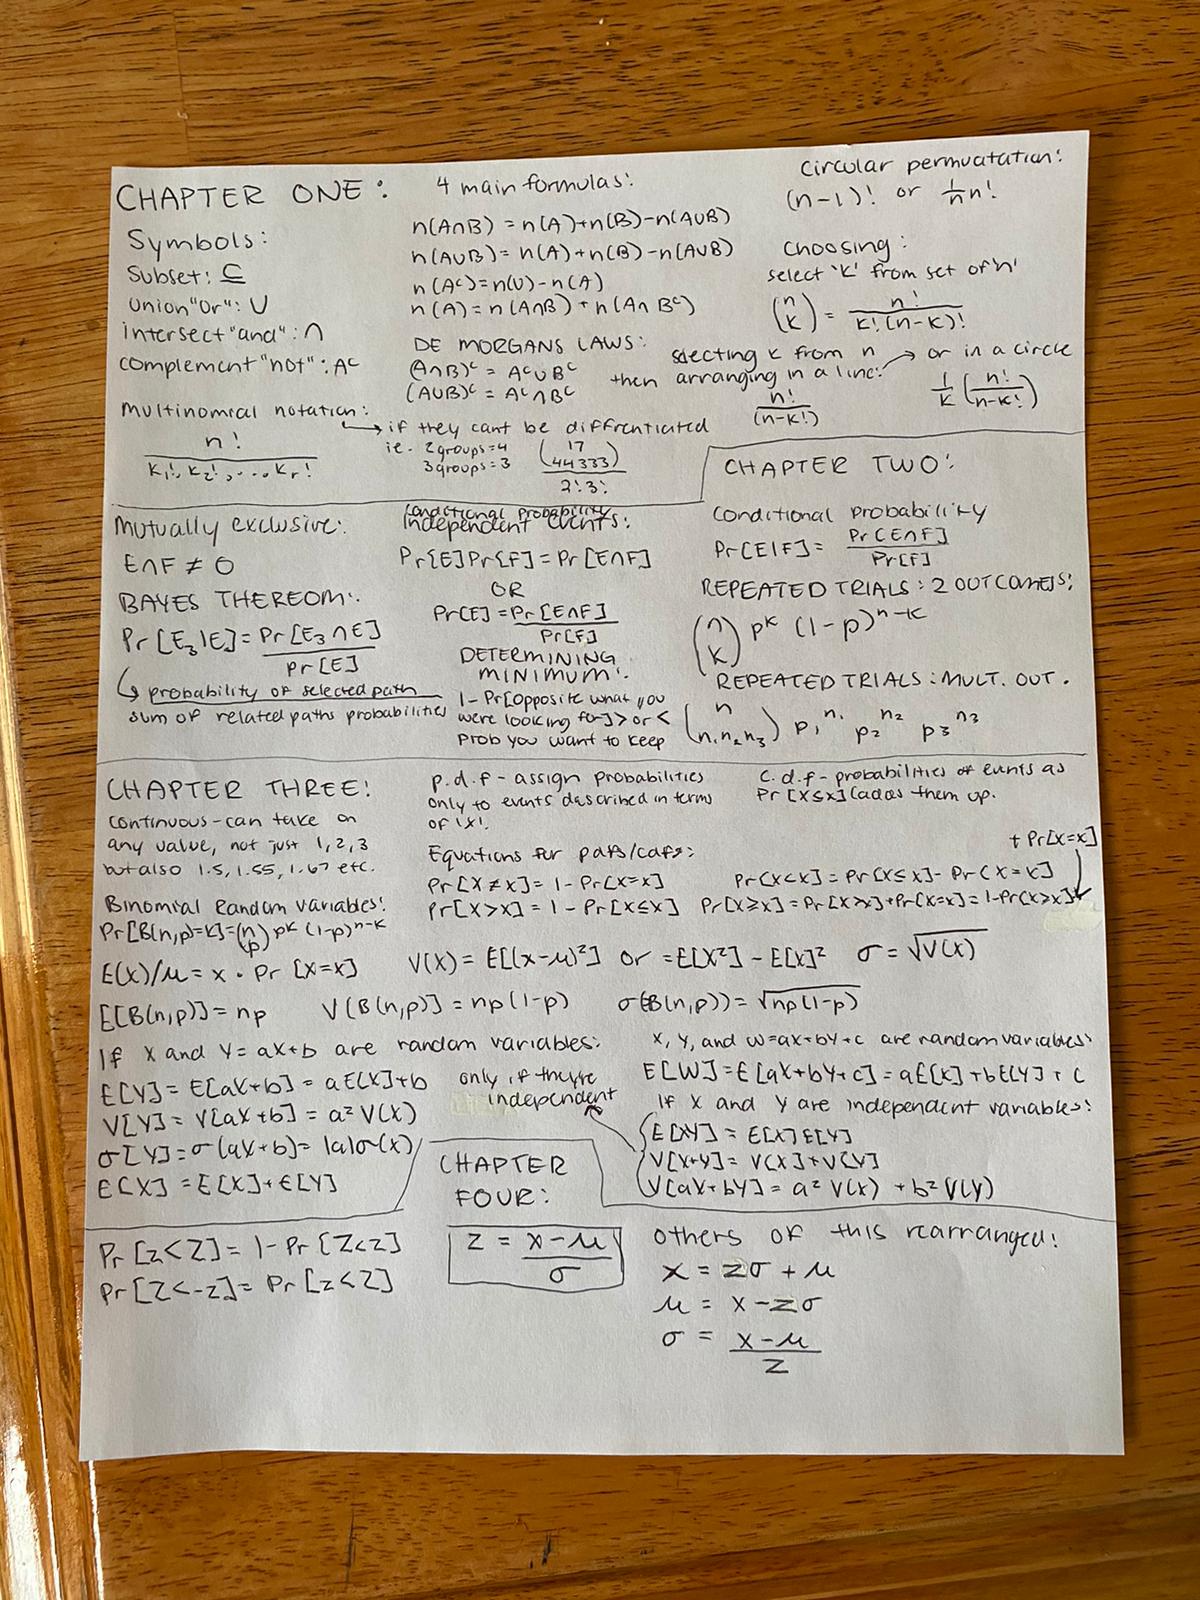 CHAPTER ONE:
Symbols:
Subset: ⊆
Union "or": ∪
intersect "and": ∩
complement "not": Aᶜ
multinomial notation:
n!
k₁!, k₂!, ..., kᵣ!
→ if they cant be diffrentiated
ie. 2 groups = 4
3 groups = 3
(17
44333)
2!3!
4 main formulas:
n(A∩B) = n(A)+n(B)-n(A∪B)
n(A∪B) = n(A)+n(B)-n(A∪B)
n(Aᶜ) = n(U)-n(A)
n(A) = n(A∩B) + n(A∩Bᶜ)
DE MORGANS LAWS:
(A∩B)ᶜ = Aᶜ∪Bᶜ
(A∪B)ᶜ = Aᶜ∩Bᶜ
circular permuatation:
(n-1)! or 1/n n!
Choosing:
select 'k' from set of 'n'
(n k) = n!/k!(n-k)!
selecting k from n → or in a circle
then arranging in a line:
n!/(n-k!)
1/k (n!/n-k!)
CHAPTER TWO:
Conditional Probability
Pr[E|F] = Pr[E∩F]/Pr[F]
REPEATED TRIALS: 2 OUTCOMES:
(n k) pᵏ (1-p)ⁿ⁻ᵏ
REPEATED TRIALS: MULT. OUT.
(n n₁n₂n₃) p₁ⁿ¹ p₂ⁿ² p₃ⁿ³
Mutually exclusive:
E∩F ≠ 0
BAYES THEREOM:
Pr[E₃|E] = Pr[E₃∩E]/Pr[E]
↳ probability of selected path
sum of related paths probabilities
conditional probability
independent events:
Pr[E]Pr[F] = Pr[E∩F]
OR
Pr[E] = Pr[E∩F]/Pr[F]
DETERMINING
MINIMUM:
1 - Pr[opposite what you
were looking for] > or <
prob you want to keep
CHAPTER THREE!
continuous - can take on
any value, not just 1, 2, 3
but also 1.5, 1.55, 1.67 etc.
p.d.f - assign probabilities
only to events described in terms
of 'X'.
c.d.f - probabilities of events as
Pr[X≤x] (adds them up.
Equations for pdfs/cdfs:
+ Pr[X=x]
Pr[X≠x] = 1 - Pr[X=x]
Pr[X<x] = Pr[X≤x] - Pr[X=x]
Pr[X>x] = 1 - Pr[X≤x]
Pr[X≥x] = Pr[X>x]+Pr[X=x] = 1-Pr[X>x]
Binomial Random variables:
Pr[B(n,p)=k] = (n p) pᵏ (1-p)ⁿ⁻ᵏ
E(X)/μ = x • Pr[X=x]
V(X) = E[(x-μ)²] or = E[X²] - E[X]²
σ = √V(X)
E[B(n,p)] = np
V(B(n,p)] = np(1-p)
σ(B(n,p)) = √np(1-p)
If X and Y = aX+b are random variables:
E[Y] = E[aX+b] = aE[X]+b
V[Y] = V[aX+b] = a²V(X)
σ[Y] = σ(aX+b) = |a|σ(x)
E[X] = E[X]+E[Y]
only if they're
independent
X, Y, and W=aX+bY+c are random variables:
E[W] = E[aX+bY+c] = aE[X]+bE[Y]+c
If X and Y are independent variables:
E[XY] = E[X]E[Y]
V[X+Y] = V[X]+V[Y]
V[aX+bY] = a²V(X) + b²V(Y)
CHAPTER
FOUR:
Pr[z<Z] = 1-Pr[Z<z]
Pr[Z<-z] = Pr[z<Z]
z = x-μ/σ
others of this rearranged:
x = zσ + μ
μ = x - zσ
σ = x-μ/z